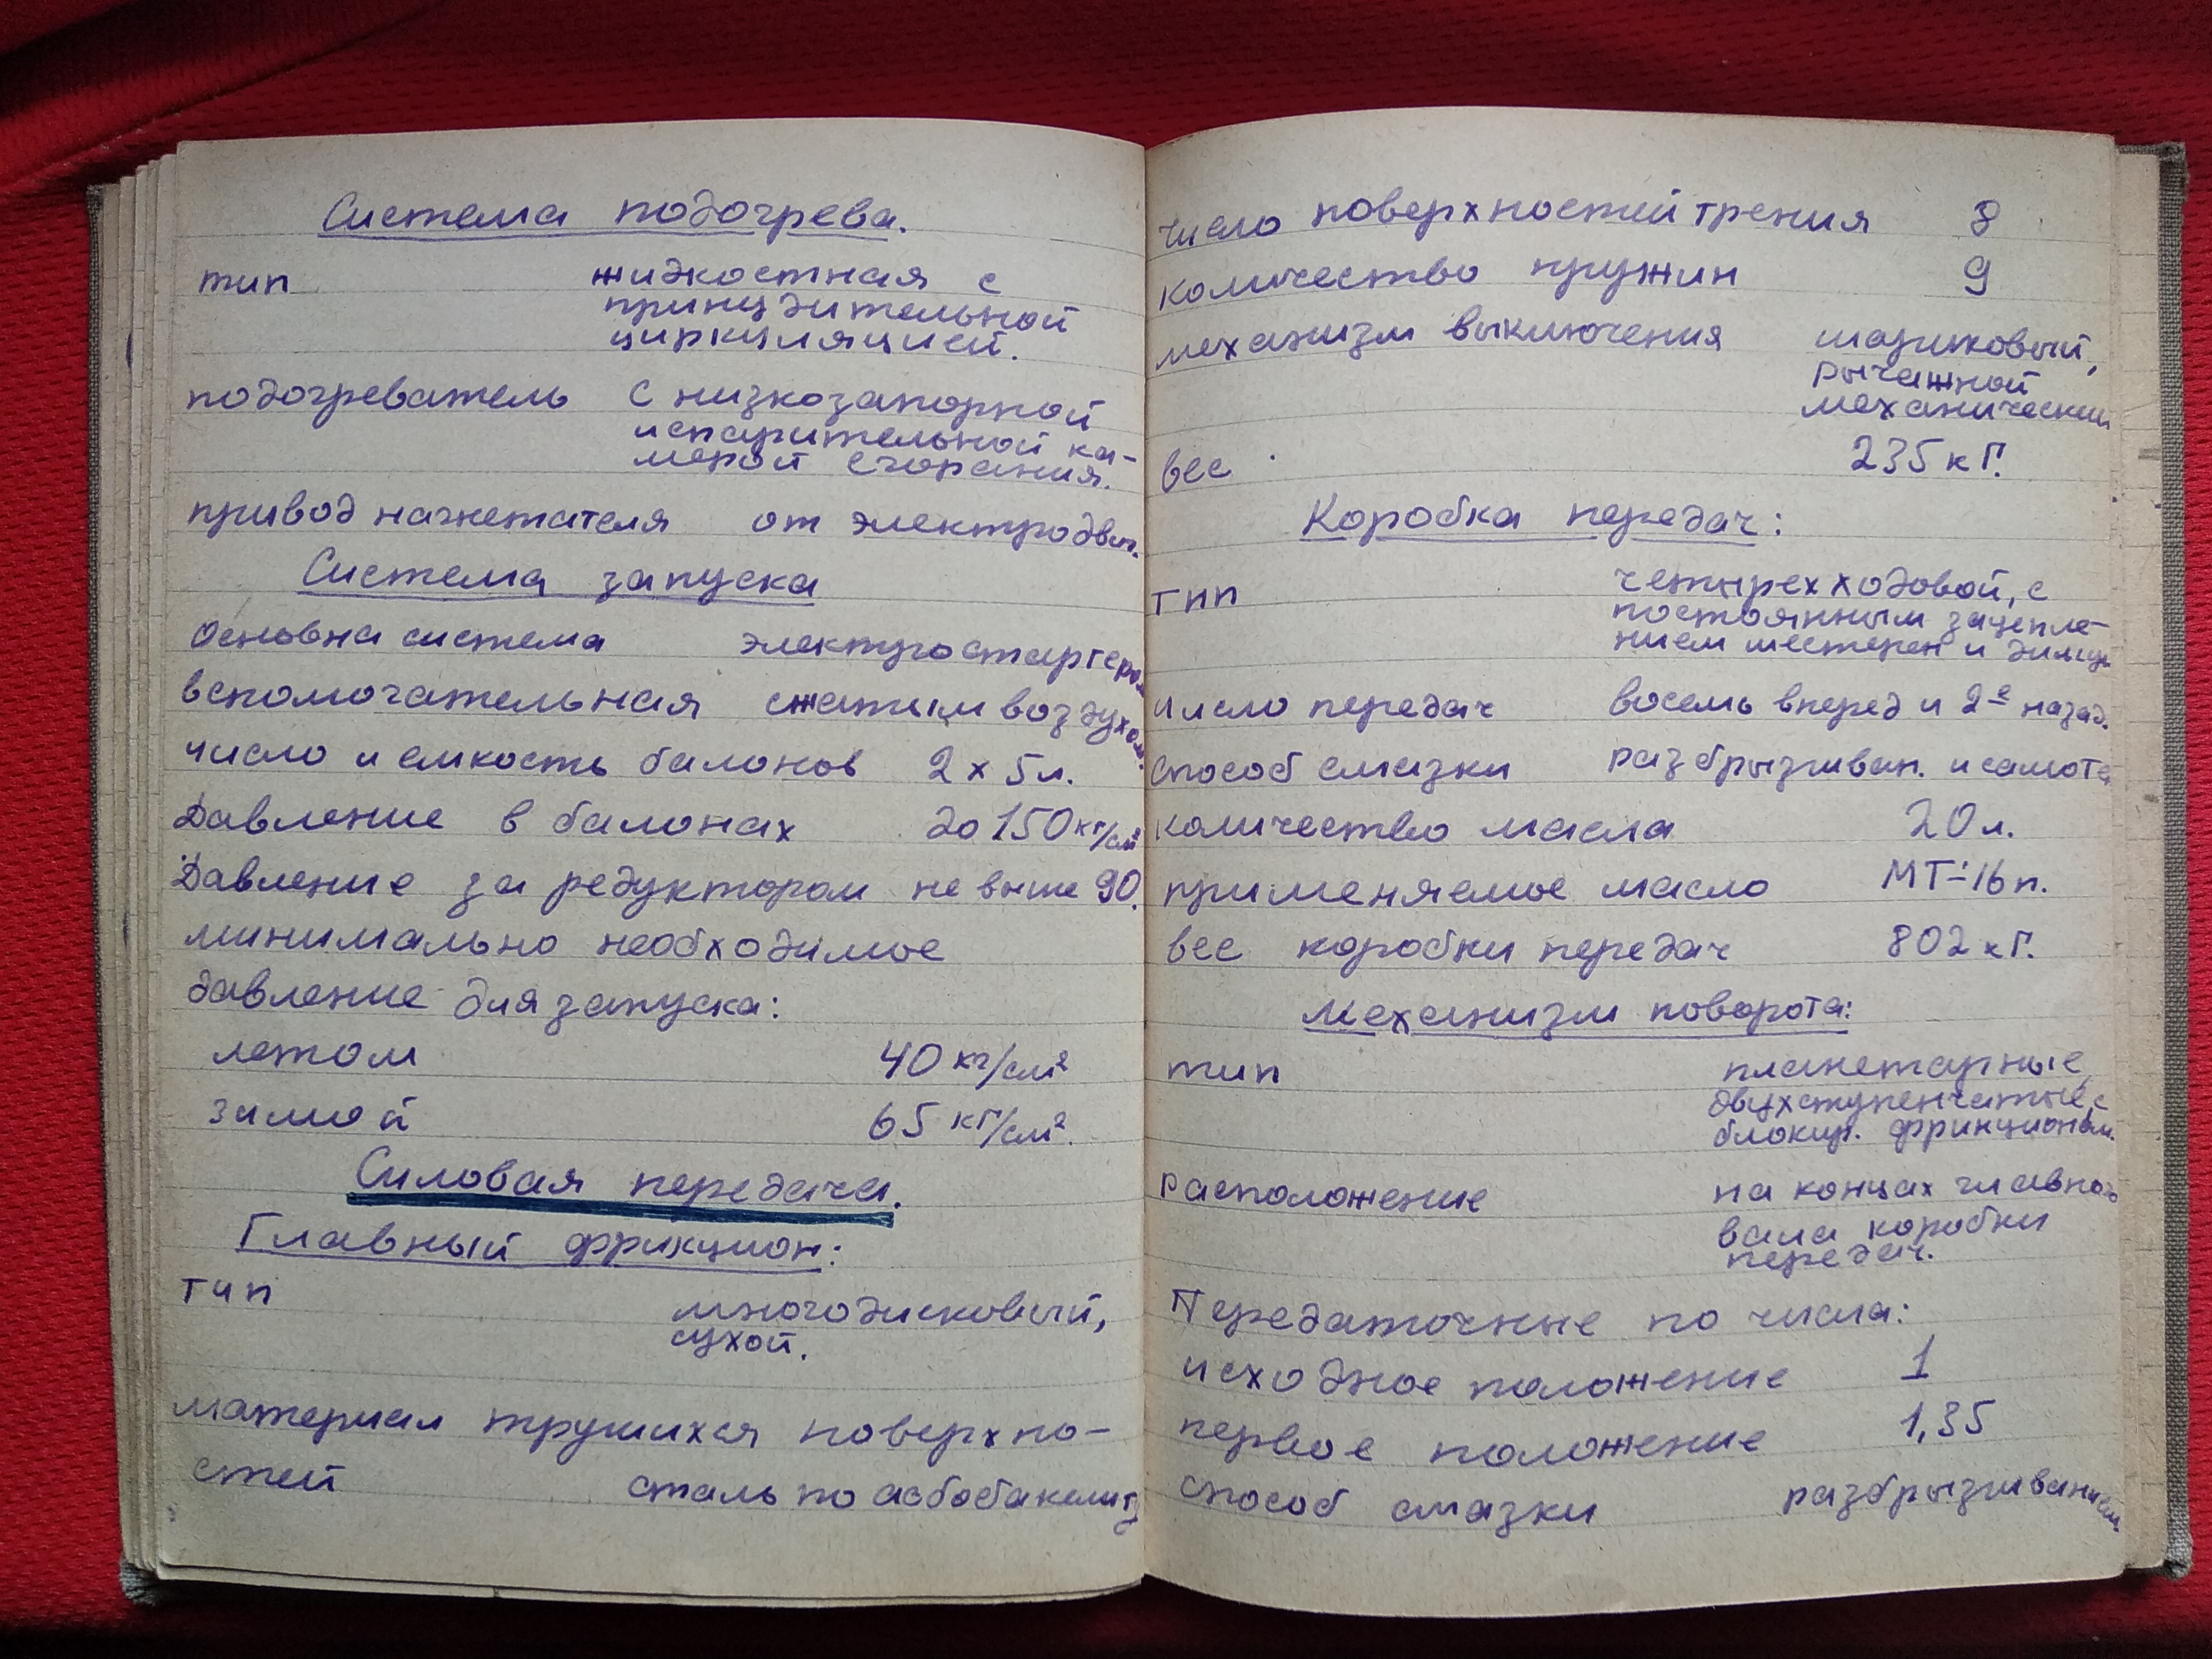 Система подогрева.
тип жидкостная с
принудительной
циркуляцией.
подогреватель с низкозапорной
испарительной ка-
мерой сгорания.
привод нагнетателя от электродвиг.
Система запуска
Основна система электростартером
вспомогательная сжатым воздухом.
число и емкость балонов 2 х 5 л.
Давление в балонах до 150 кг/см²
Давление за редуктором не выше 90.
минимально необходимое
давление для запуска:
летом 40 кг/см²
зимой 65 кг/см².
Силовая передача.
Главный фрикцион:
тип многодисковый,
сухой.
материал трущихся поверхно-
стей сталь по асбобакелиту
число поверхностей трения 8
количество пружин 9
механизм выключения шариковый,
рычажной
механический
вес 235 кГ.
Коробка передач:
тип четырехходовой, с
постоянным зацепле-
нием шестерен и
число передач восемь вперед и 2е назад.
способ смазки разбрызгиван. и самоте
количество масла 20 л.
применяемое масло МТ-16п.
вес коробки передач 802 кГ.
Механизм поворота:
тип планетарные,
двухступенчатые, с
блокир. фрикционом.
расположение на концах главного
вала коробки
передач.
Передаточные по числа:
исходное положение 1
первое положение 1,35
способ смазки разбрызгиванием